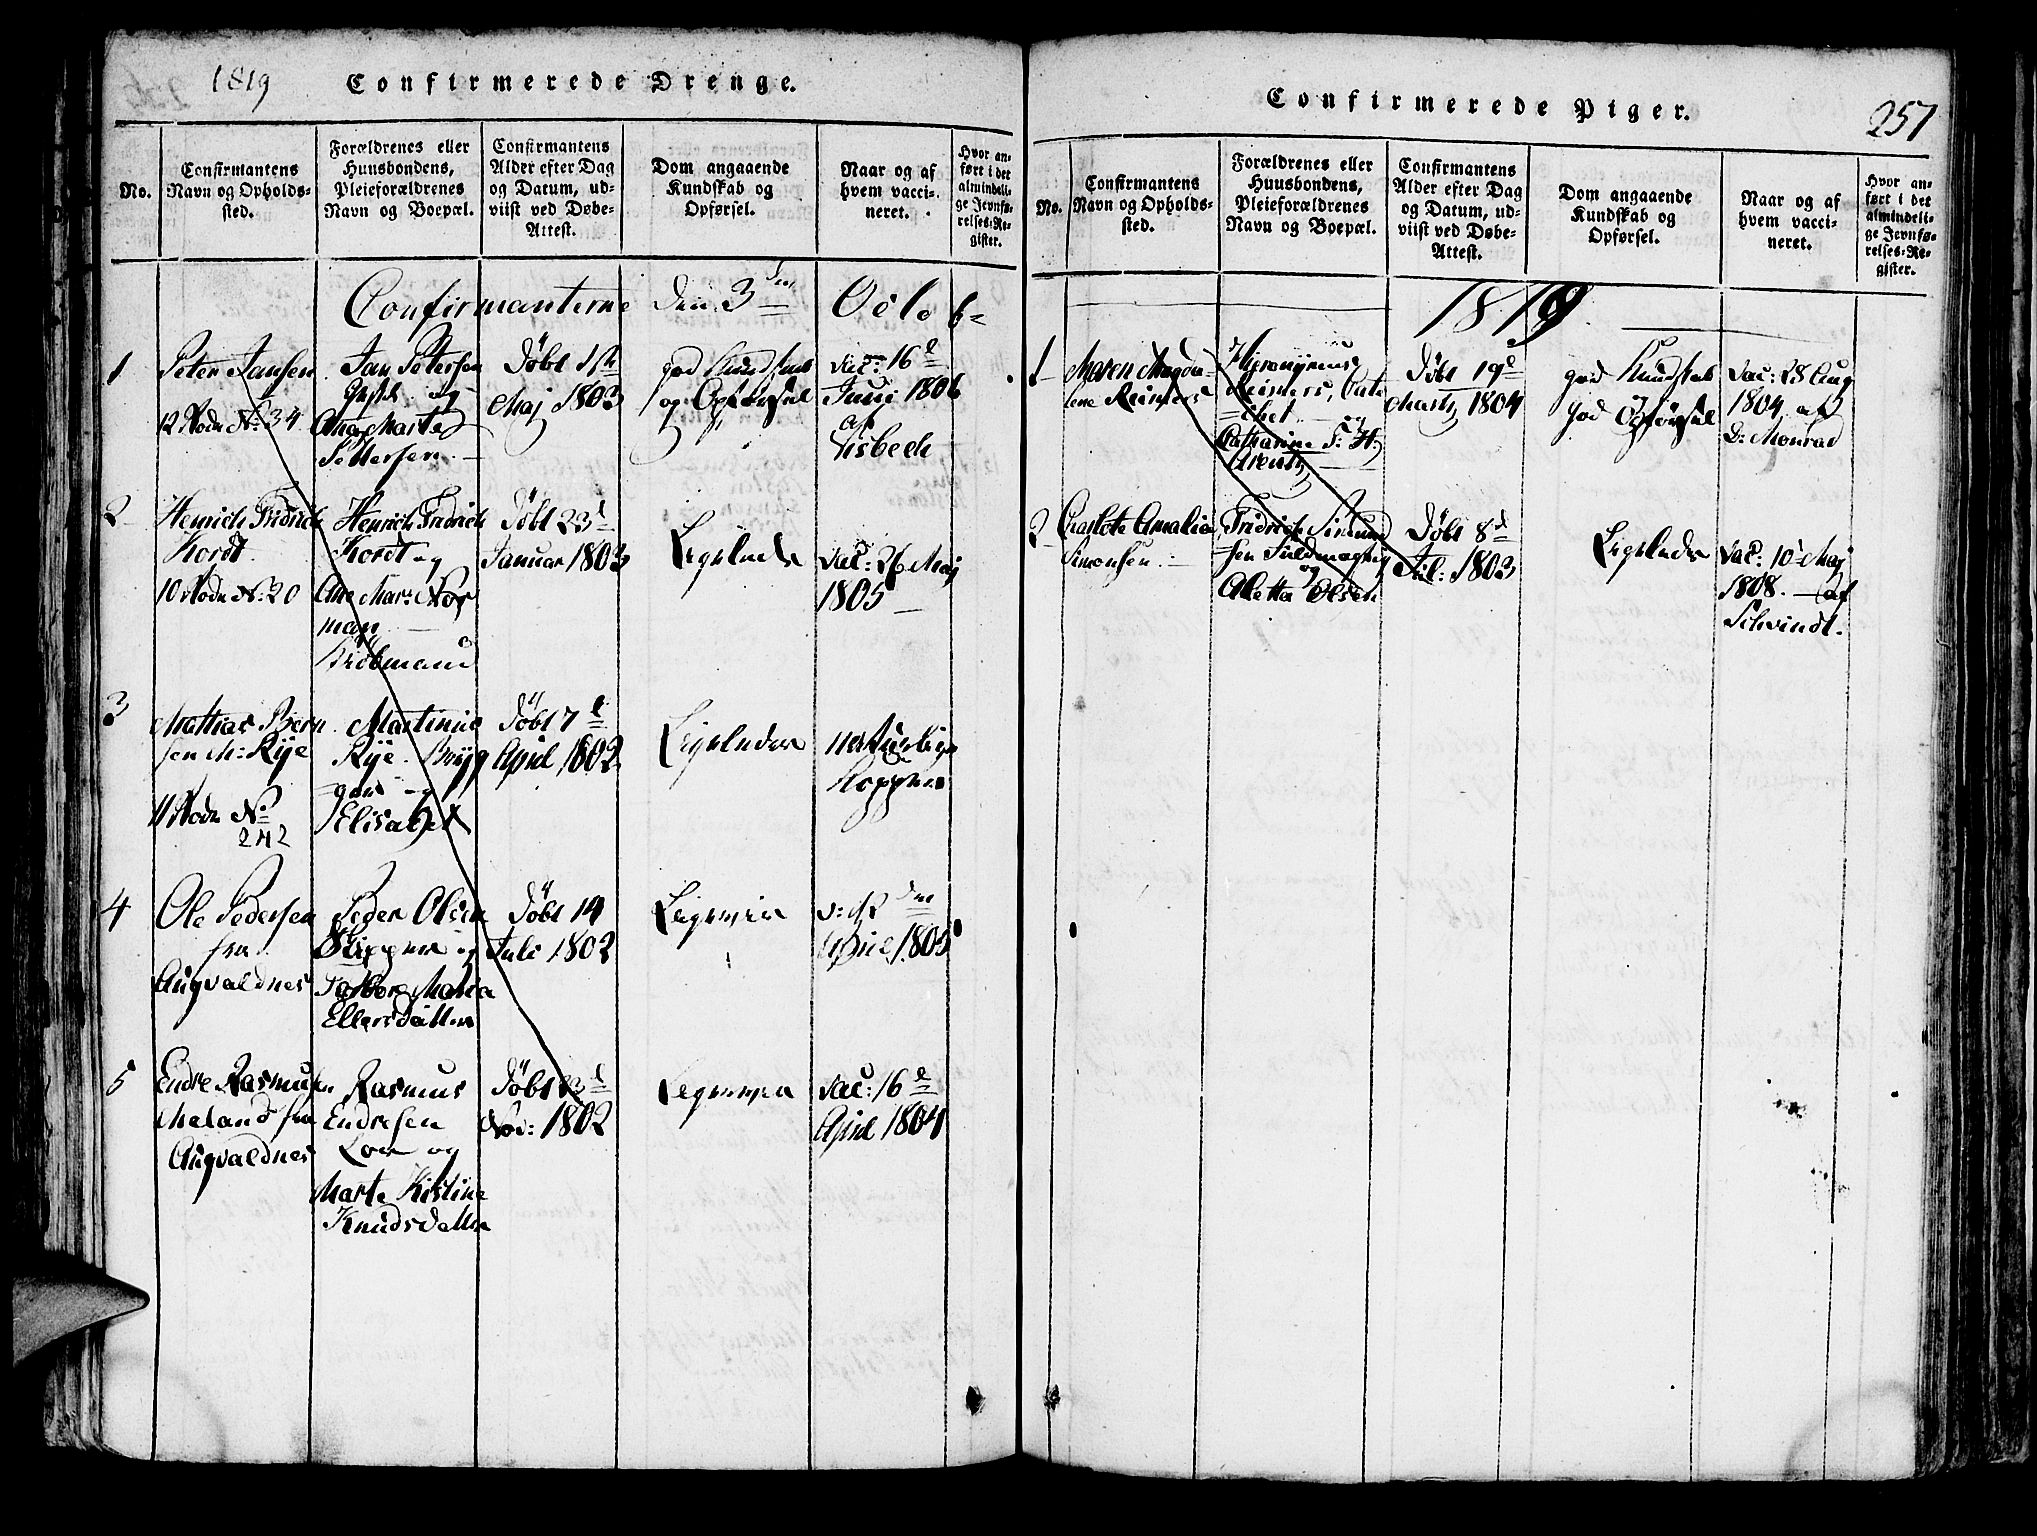 1819 Confirmerede Drenge.
No.
Confirmantens
Navn og Opholds-
sted.
Forældrenes eller
Huusbondens,
Pleieforældrenes
Navn og Boepæl.
Confirmantens
Alder efter Dag
og Datum, ud-
viist ved Døbe-
Attest.
Dom angaaende
Kundskab og
Opførsel.
Naar og af
hvem vacci-
neret.
Hvor an-
ført i det
almindeli-
ge Jevnfø-
relses-Re-
gister.
Confirmanterne den 3den Octob
1
Peter Jansen
12 Rode No: 34
Jan Petersen
og
Ane Marte
Pettersen
Døbt 1st
Maj 1803
god Kundskab
og Opførsel
Vac: 16d
Juni 1806
af
Lisbech
2
Henrich Fridrich
Kordt
10 Rode No: 20
Henrich Fridrich
Kordt og
Ane Mar: Nor
man
Døbt 23d
Januar 1803
Ligeledes
Vac: 26 Maj
1805
3
Mathias Bern
sen M: Rye
11 Rode No
242
Martinus
Rye Brygg
og
Elisabet
Døbt 7d
April 1802
Ligeledes
naturlige
Kopper
4
Ole Pedersen
fra
Augvaldnes
Peder Olsen
Skipper og
Torbor Maria
Ellersdatter
Døbt 14
Juli 1802
Ligesaa
v: 12den
April 1805
5
Endre Rasmusen
Meland fra
Augvaldnes
Rasmus
Endresen
og
Marte Kistine
Knudsdatter
Døbt 23d
Nov: 1802
Ligesaa
Vac: 16d
April 1804
Confirmerede Piger. 257
No.
Confirmantens
Navn og Opholds-
sted.
Forældrenes eller
Huusbondens,
Pleieforældrenes
Navn og Boepæl.
Confirmantens
Alder efter Dag
og Datum, ud-
viist ved Døbe-
Attest.
Dom angaaende
Kundskab og
Opførsel.
Naar og af
hvem vacci-
neret.
Hvor an-
ført i det
almindeli-
ge Jevnfø-
relses-Re-
gister.
1819
1
Maren Magda-
lene Reimers
Hyeronymus
Reimers, Cate
chet og
Catharine F: H:
Arentz
Døbt 19d
Marts 1804
god Kundskab
god Opførsel
Vac: 28 Aug
1804 af
D: Monrad
2
Charlote Amalia
Simonsen
Fridrich Simon
sen Fuldmægtig
og
Aletta Olsen
Døbt 8d
Jul: 1803
Ligeledes
Vac: 10 Maj
1808. af
Schvindt.